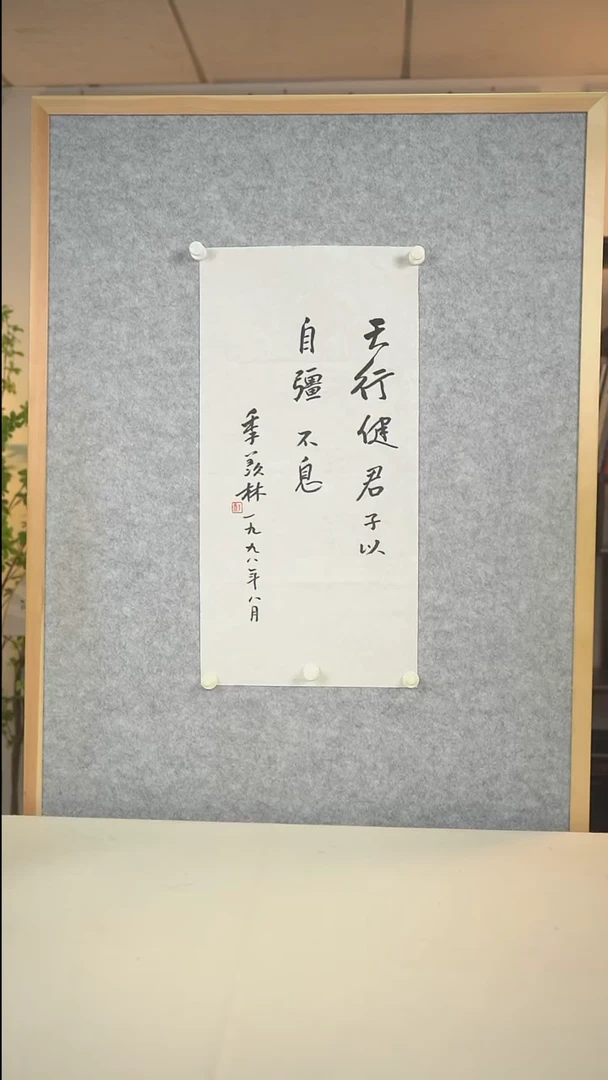 天行健君子以
自彊不息
季羡林
一九九八年八月